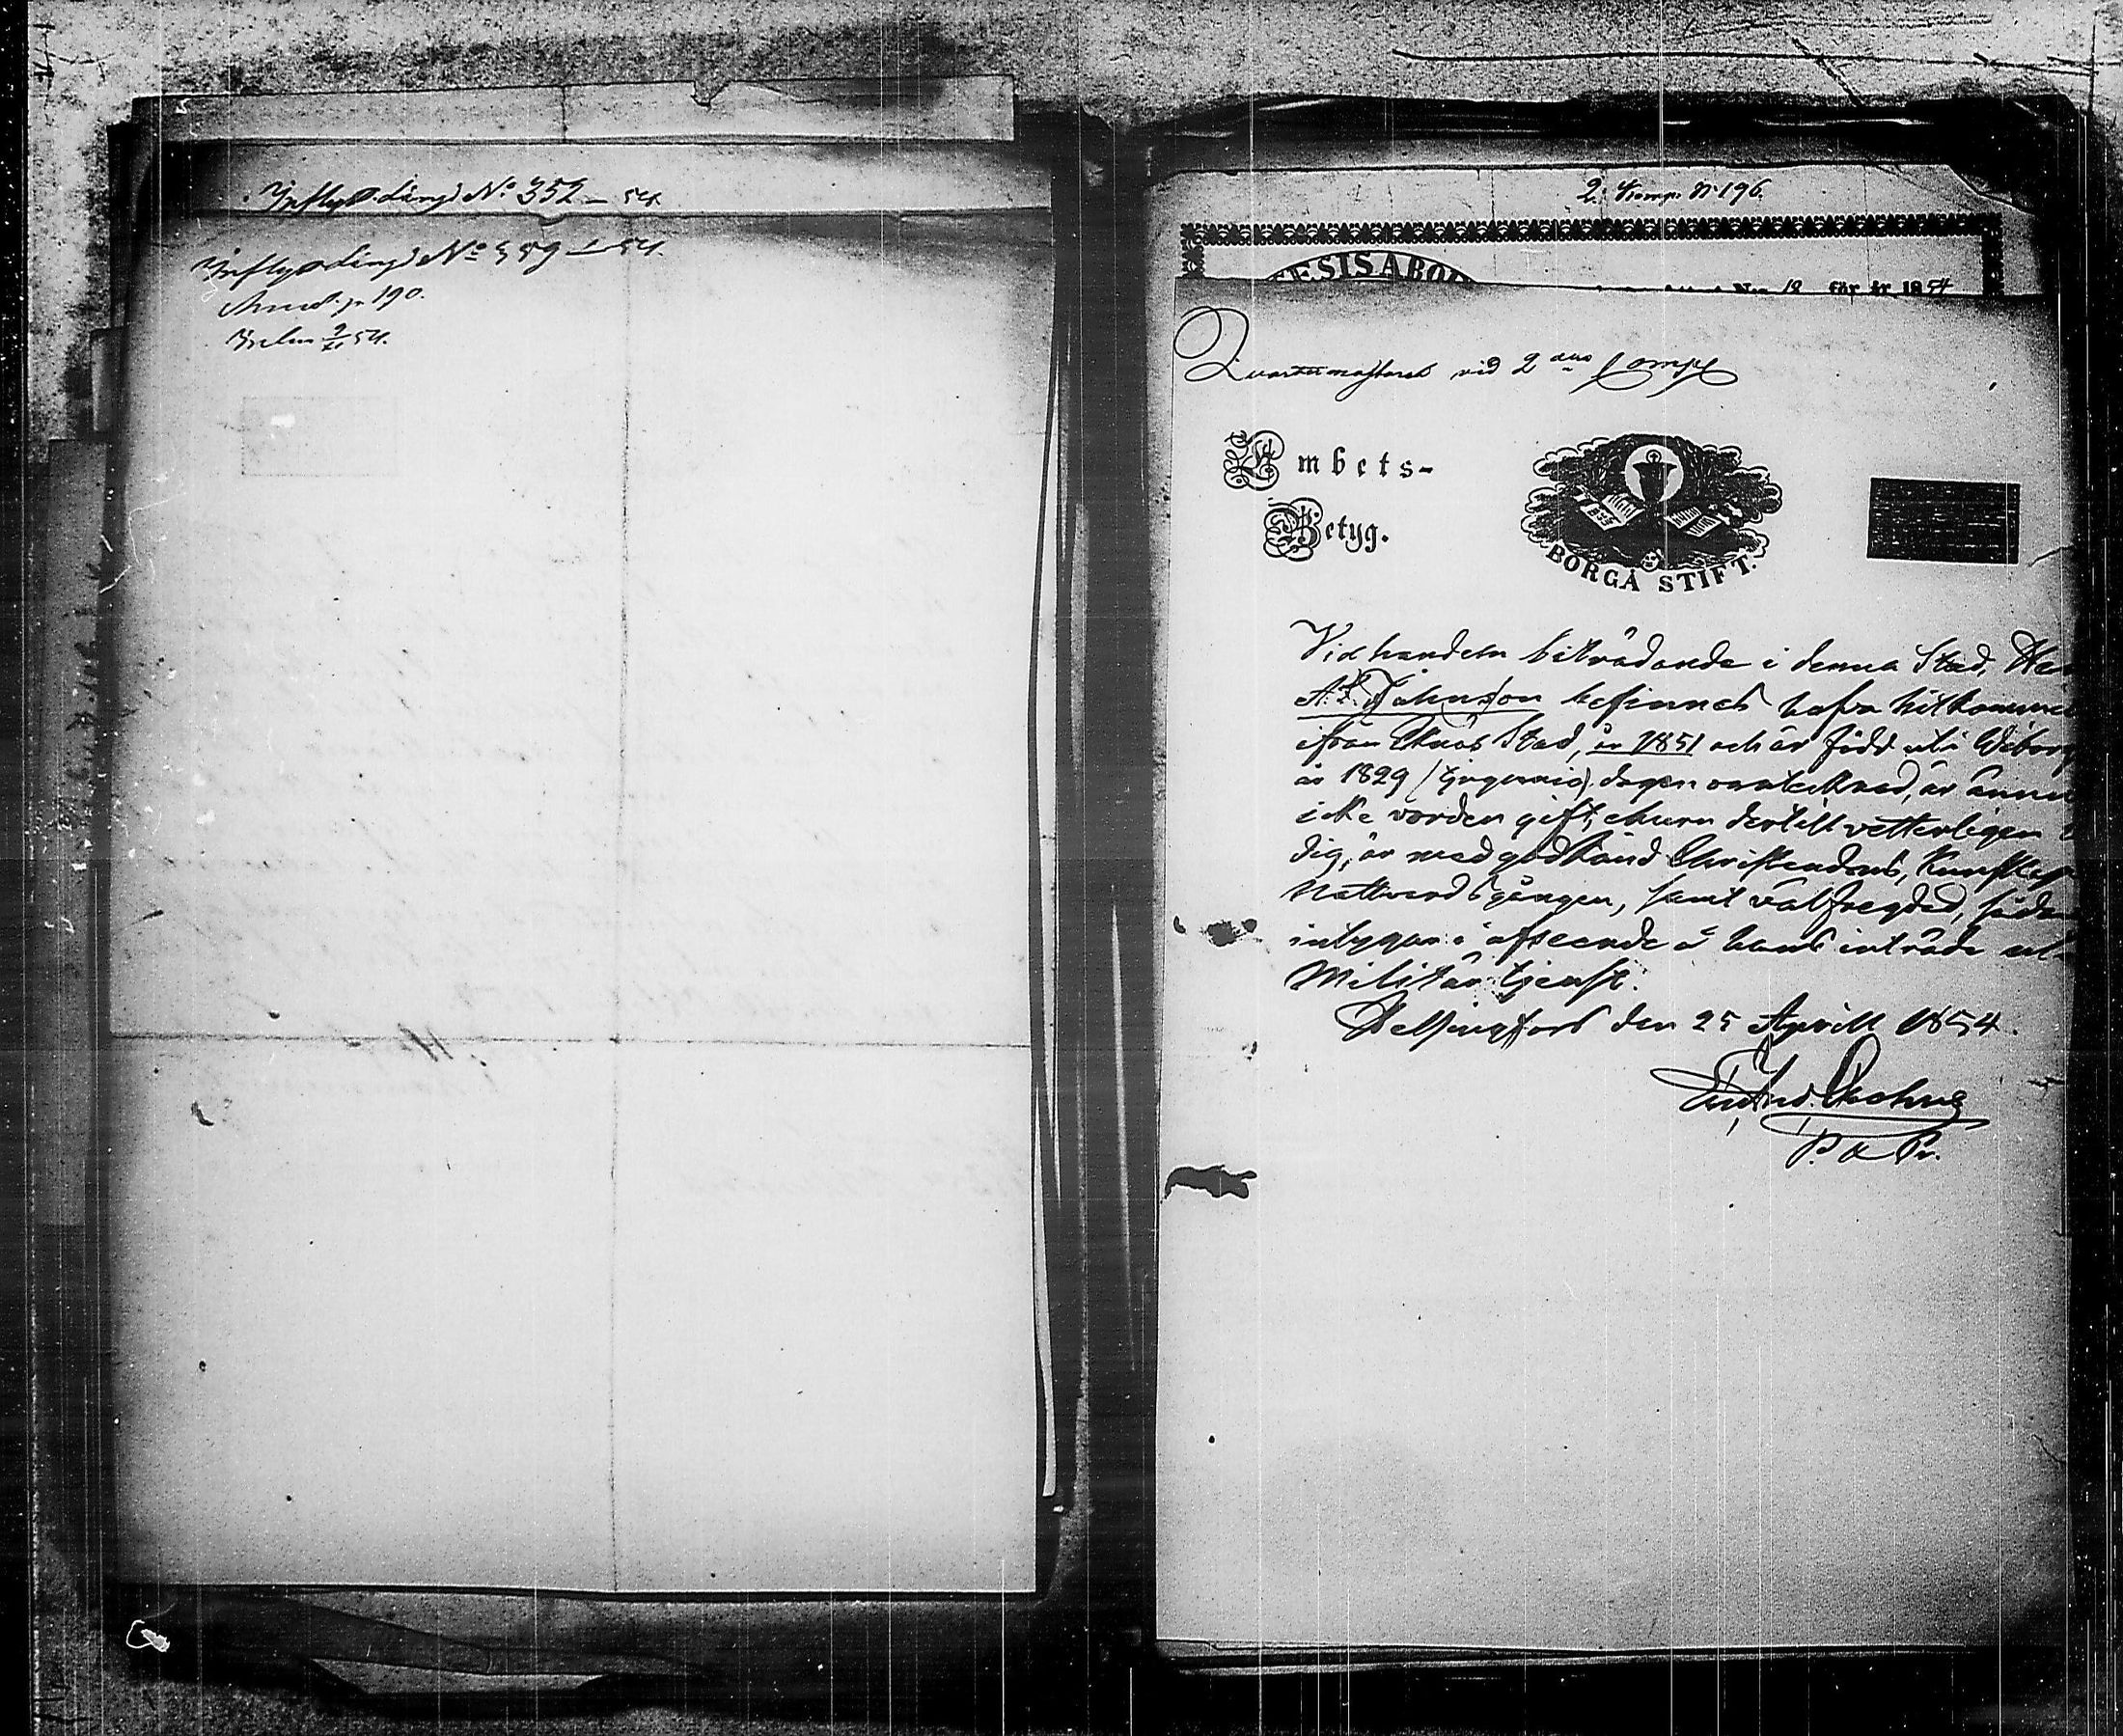 Inflyttn. Längd No 352 – 54.
Inflyttn. Längd No 359 – 54.
p. 190.
54.
2. Komp. N 196.
ESIS ABO
No 12 för år 1854
Qvartermästaren vid 2dra Comp
Embets-
Betyg.
BORGÅ STIFT.
Vid handeln biträdande i denna Stad, Her
A. F. Johnsson befinnes hafva hitkommit
ifrån Eknäs Stad, år 1851 och är född uti Wiborg
år 1829 dagen oantecknad, är ännu
icke vorden gift, ehuru dertill vetterligen
dig, är med godkänd Christendoms Kunskap
Nattvardsgången, samt välfregdad, såda
intygar i afseende å hans inträde uti
Militär tjenst.
Helsingfors den 25 Aprill 1854.
P. o. Pr.